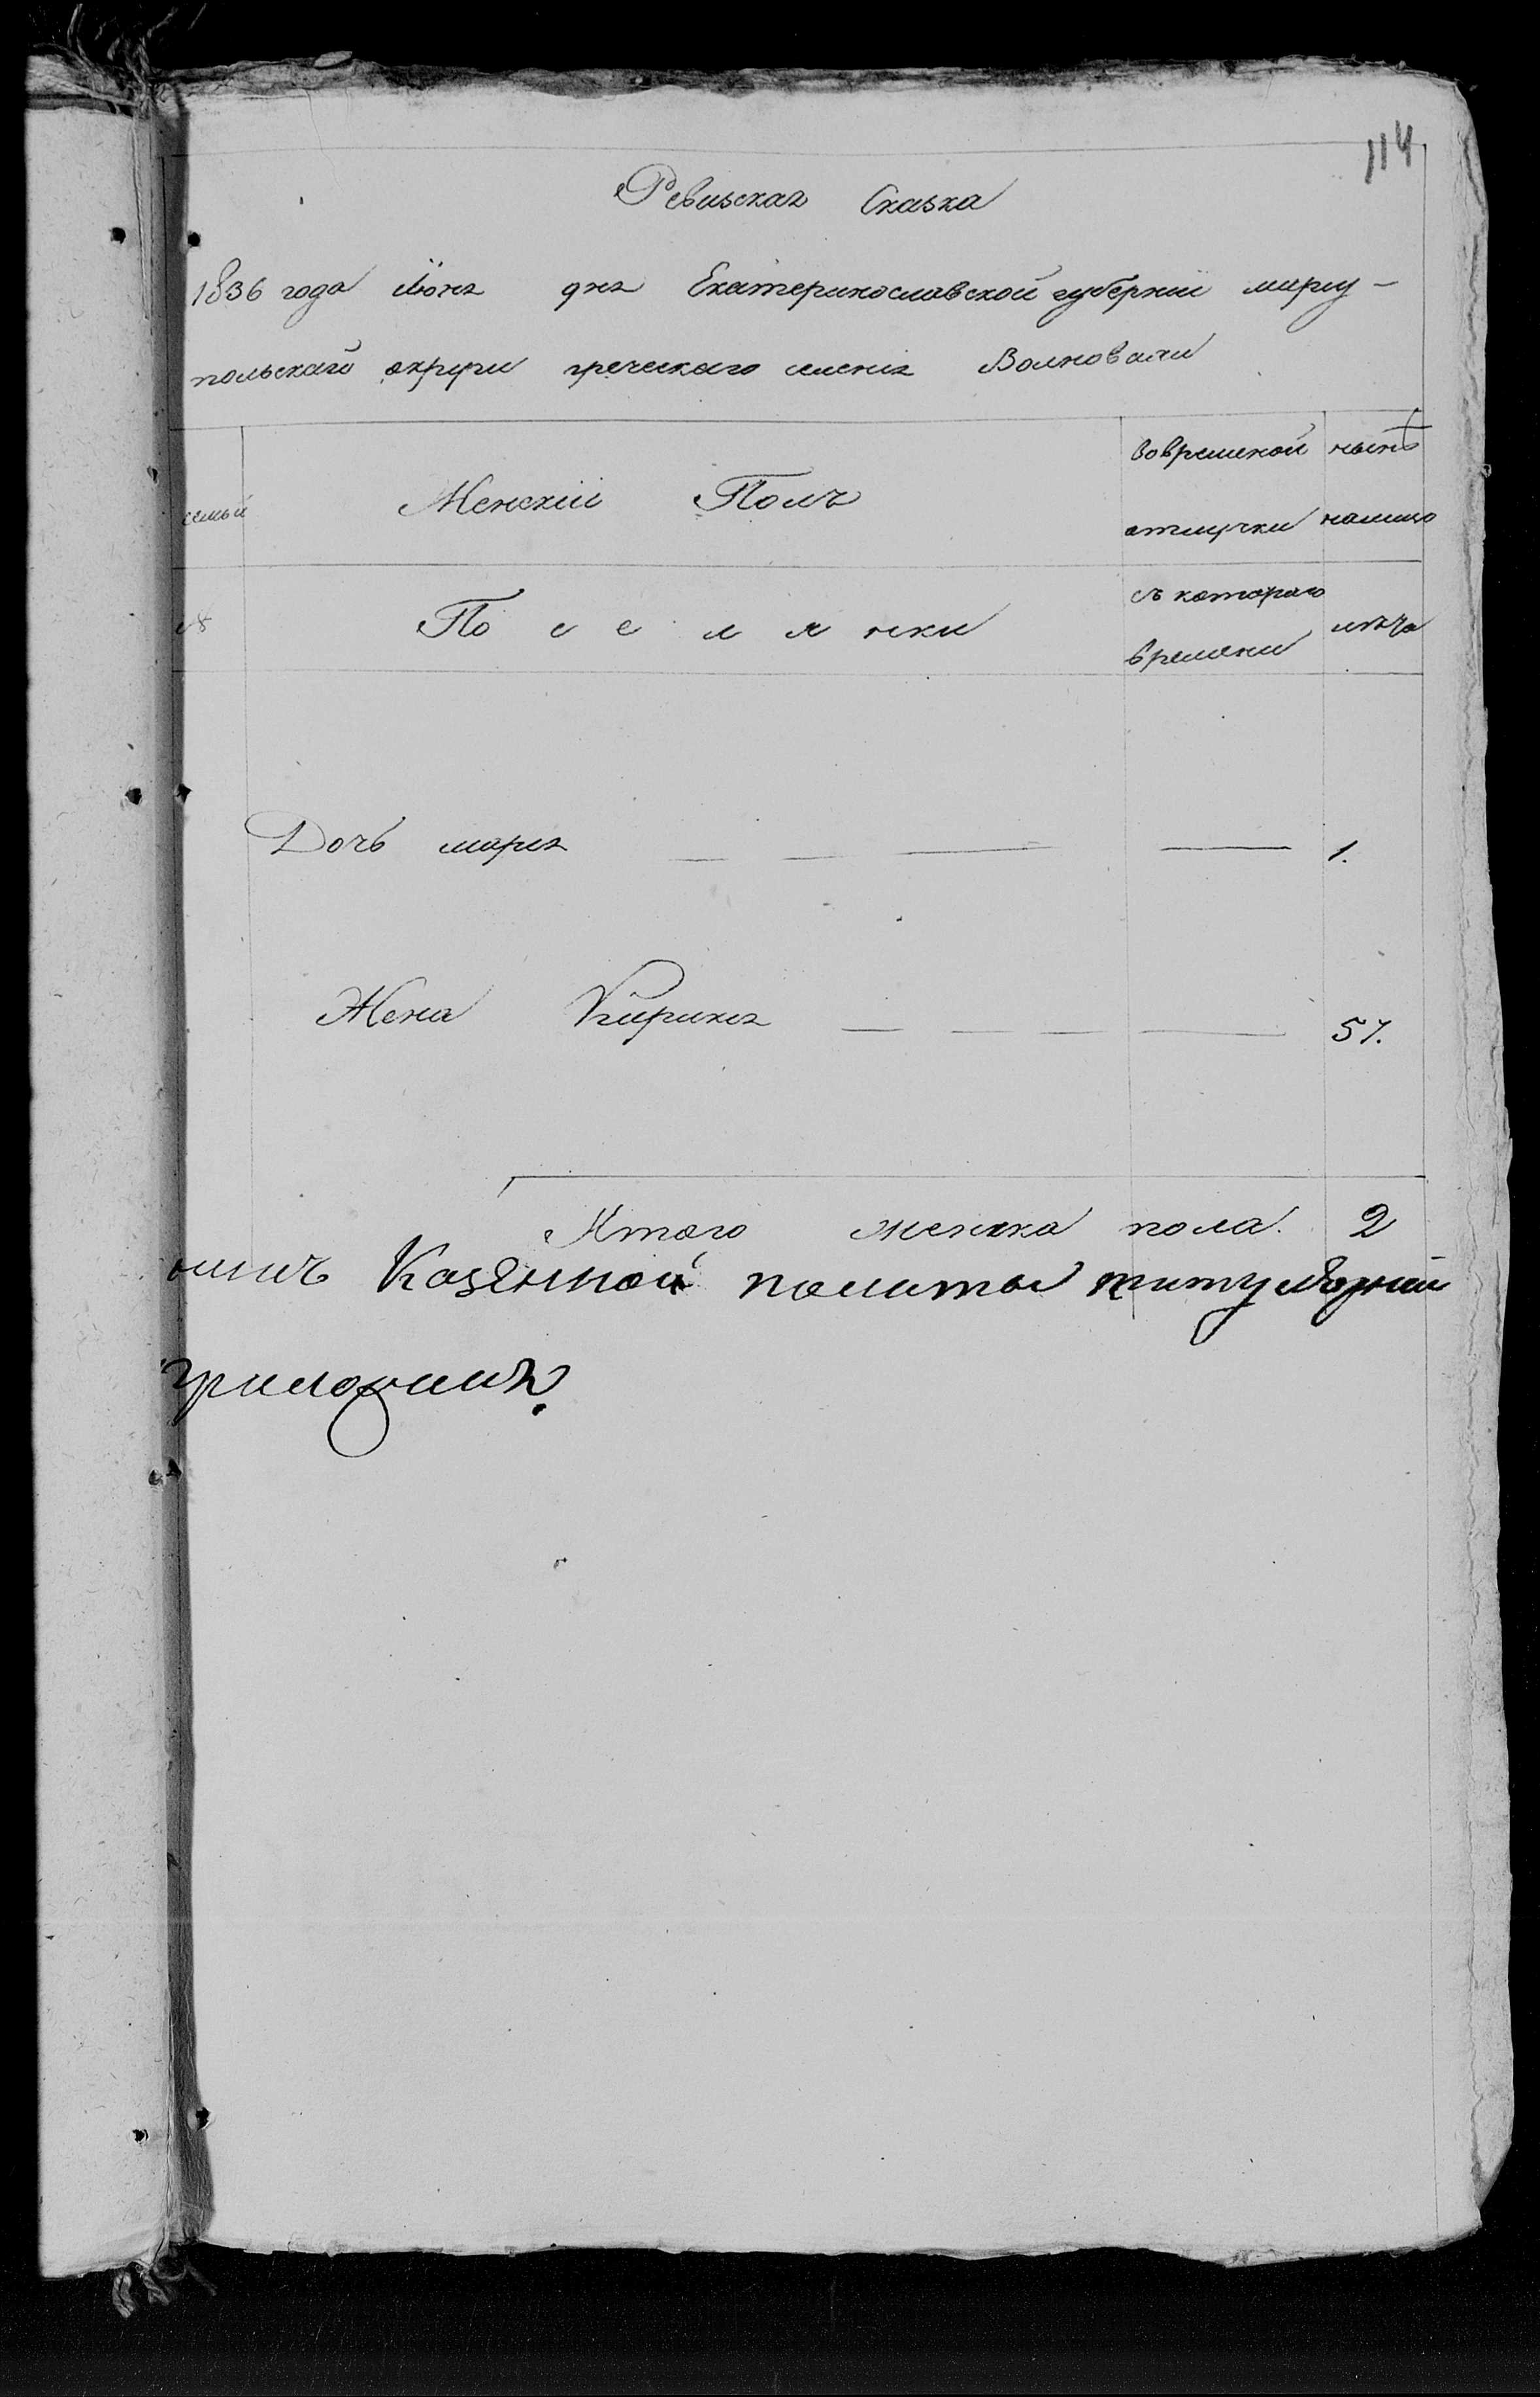 114
Ревизская Сказка
1836 года июня дня Екатеринославской губернии мариу-
польскаго округи греческаго селения Волновахи
семьи
Женский Полъ
вовременой
отлучки
ныне
налицо
№
По с е л я нки
съ котораго
времени
лѣта
Дочь мария 1.
Жена Кирикия 57.
Итого женска пола. 2
Казенной полаты титулярний